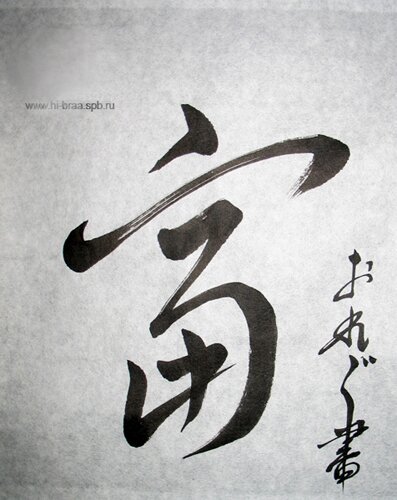 www.hi-braa.spb.ru
富
おれぐ書